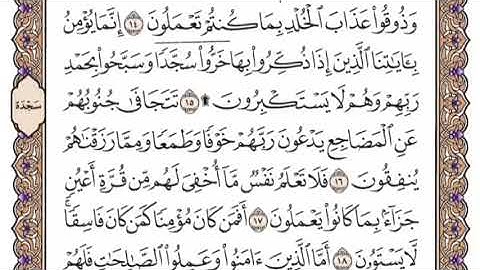 وَذُوقُوا۟ عَذَابَ ٱلْخُلْدِ بِمَا كُنتُمْ تَعْمَلُونَ ١٤ إِنَّمَا يُؤْمِنُ
بِـَٔايَٰتِنَا ٱلَّذِينَ إِذَا ذُكِّرُوا۟ بِهَا خَرُّوا۟ سُجَّدًا وَسَبَّحُوا۟ بِحَمْدِ
رَبِّهِمْ وَهُمْ لَا يَسْتَكْبِرُونَ ۩ ١٥ تَتَجَافَىٰ جُنُوبُهُمْ
سَجْدَة
عَنِ ٱلْمَضَاجِعِ يَدْعُونَ رَبَّهُمْ خَوْفًا وَطَمَعًا وَمِمَّا رَزَقْنَٰهُمْ
يُنفِقُونَ ١٦ فَلَا تَعْلَمُ نَفْسٌ مَّآ أُخْفِىَ لَهُم مِّن قُرَّةِ أَعْيُنٍ
جَزَآءًۢ بِمَا كَانُوا۟ يَعْمَلُونَ ١٧ أَفَمَن كَانَ مُؤْمِنًا كَمَن كَانَ فَاسِقًا ۚ
لَّا يَسْتَوُۥنَ ١٨ أَمَّا ٱلَّذِينَ ءَامَنُوا۟ وَعَمِلُوا۟ ٱلصَّٰلِحَٰتِ فَلَهُمْ